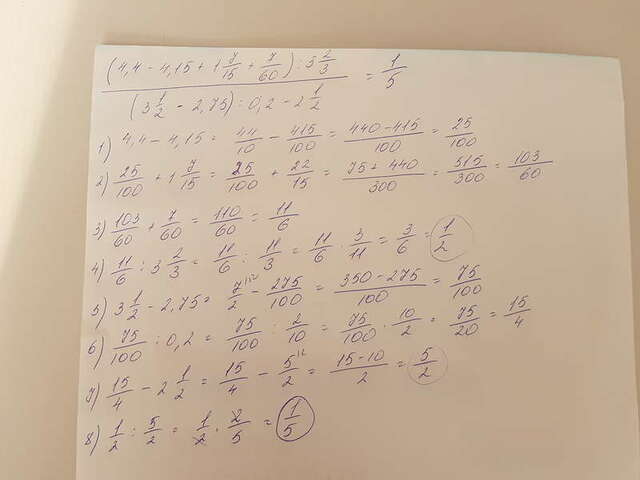 (4,4 - 4,15 + 1 7/15 + 7/60) : 3 2/3
(3 1/2 - 2,75) : 0,2 - 2 1/2 = 1/5
1) 4,4 - 4,15 = 44/10 - 415/100 = 440-415/100 = 25/100
2) 25/100 + 1 7/15 = 25/100 + 22/15 = 75+440/300 = 515/300 = 103/60
3) 103/60 + 7/60 = 110/60 = 11/6
4) 11/6 : 3 2/3 = 11/6 : 11/3 = 11/6 · 3/11 = 3/6 = 1/2
5) 3 1/2 - 2,75 = 7/2 - 275/100 = 350-275/100 = 75/100
6) 75/100 : 0,2 = 75/100 : 2/10 = 75/100 · 10/2 = 75/20 = 15/4
7) 15/4 - 2 1/2 = 15/4 - 5/2 = 15-10/2 = 5/2
8) 1/2 : 5/2 = 1/2 · 2/5 = 1/5